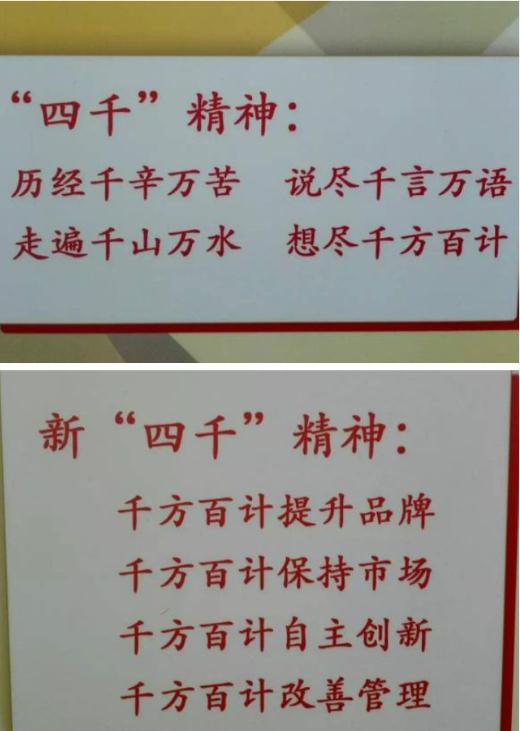 “四千”精神：
历经千辛万苦 说尽千言万语
走遍千山万水 想尽千方百计
新“四千”精神：
千方百计提升品牌
千方百计保持市场
千方百计自主创新
千方百计改善管理